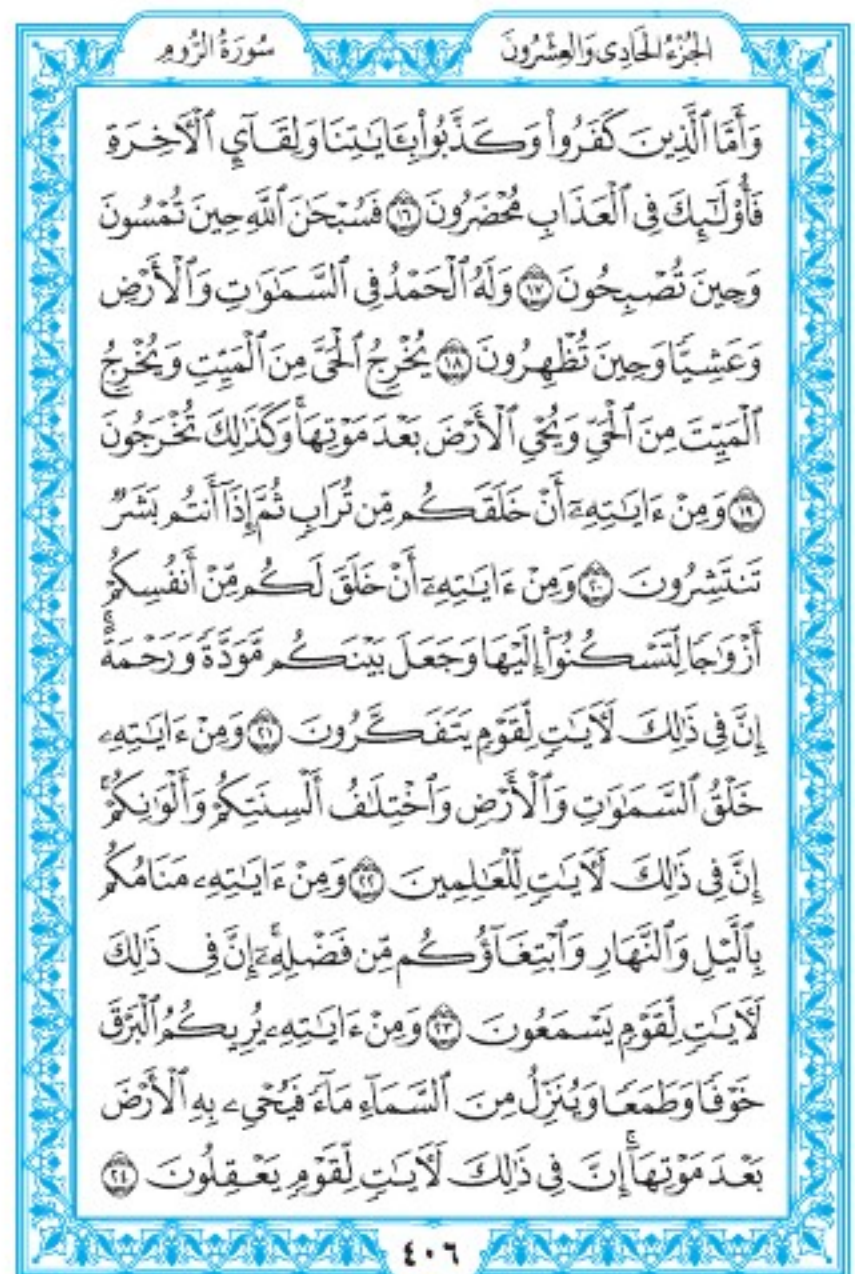 الجُزْءُ الحَادِى وَالعِشْرُونَ
سُورَةُ الرُّومِ
وَأَمَّا ٱلَّذِينَ كَفَرُواْ وَكَذَّبُواْ بِـَٔايَٰتِنَا وَلِقَآيِٕ ٱلۡأٓخِرَةِ
فَأُوْلَٰٓئِكَ فِي ٱلۡعَذَابِ مُحۡضَرُونَ ١٦ فَسُبۡحَٰنَ ٱللَّهِ حِينَ تُمۡسُونَ
وَحِينَ تُصۡبِحُونَ ١٧ وَلَهُ ٱلۡحَمۡدُ فِي ٱلسَّمَٰوَٰتِ وَٱلۡأَرۡضِ
وَعَشِيّٗا وَحِينَ تُظۡهِرُونَ ١٨ يُخۡرِجُ ٱلۡحَيَّ مِنَ ٱلۡمَيِّتِ وَيُخۡرِجُ
ٱلۡمَيِّتَ مِنَ ٱلۡحَيِّ وَيُحۡيِ ٱلۡأَرۡضَ بَعۡدَ مَوۡتِهَاۚ وَكَذَٰلِكَ تُخۡرَجُونَ
١٩ وَمِنۡ ءَايَٰتِهِۦٓ أَنۡ خَلَقَكُم مِّن تُرَابٖ ثُمَّ إِذَآ أَنتُم بَشَرٞ
تَنتَشِرُونَ ٢٠ وَمِنۡ ءَايَٰتِهِۦٓ أَنۡ خَلَقَ لَكُم مِّنۡ أَنفُسِكُمۡ
أَزۡوَٰجٗا لِّتَسۡكُنُوٓاْ إِلَيۡهَا وَجَعَلَ بَيۡنَكُم مَّوَدَّةٗ وَرَحۡمَةًۚ
إِنَّ فِي ذَٰلِكَ لَأٓيَٰتٖ لِّقَوۡمٖ يَتَفَكَّرُونَ ٢١ وَمِنۡ ءَايَٰتِهِۦ
خَلۡقُ ٱلسَّمَٰوَٰتِ وَٱلۡأَرۡضِ وَٱخۡتِلَٰفُ أَلۡسِنَتِكُمۡ وَأَلۡوَٰنِكُمۡۚ
إِنَّ فِي ذَٰلِكَ لَأٓيَٰتٖ لِّلۡعَٰلِمِينَ ٢٢ وَمِنۡ ءَايَٰتِهِۦ مَنَامُكُم
بِٱلَّيۡلِ وَٱلنَّهَارِ وَٱبۡتِغَآؤُكُم مِّن فَضۡلِهِۦٓۚ إِنَّ فِي ذَٰلِكَ
لَأٓيَٰتٖ لِّقَوۡمٖ يَسۡمَعُونَ ٢٣ وَمِنۡ ءَايَٰتِهِۦ يُرِيكُمُ ٱلۡبَرۡقَ
خَوۡفٗا وَطَمَعٗا وَيُنَزِّلُ مِنَ ٱلسَّمَآءِ مَآءٗ فَيُحۡيِۦ بِهِ ٱلۡأَرۡضَ
بَعۡدَ مَوۡتِهَآۚ إِنَّ فِي ذَٰلِكَ لَأٓيَٰتٖ لِّقَوۡمٖ يَعۡقِلُونَ ٢٤
٤٠٦